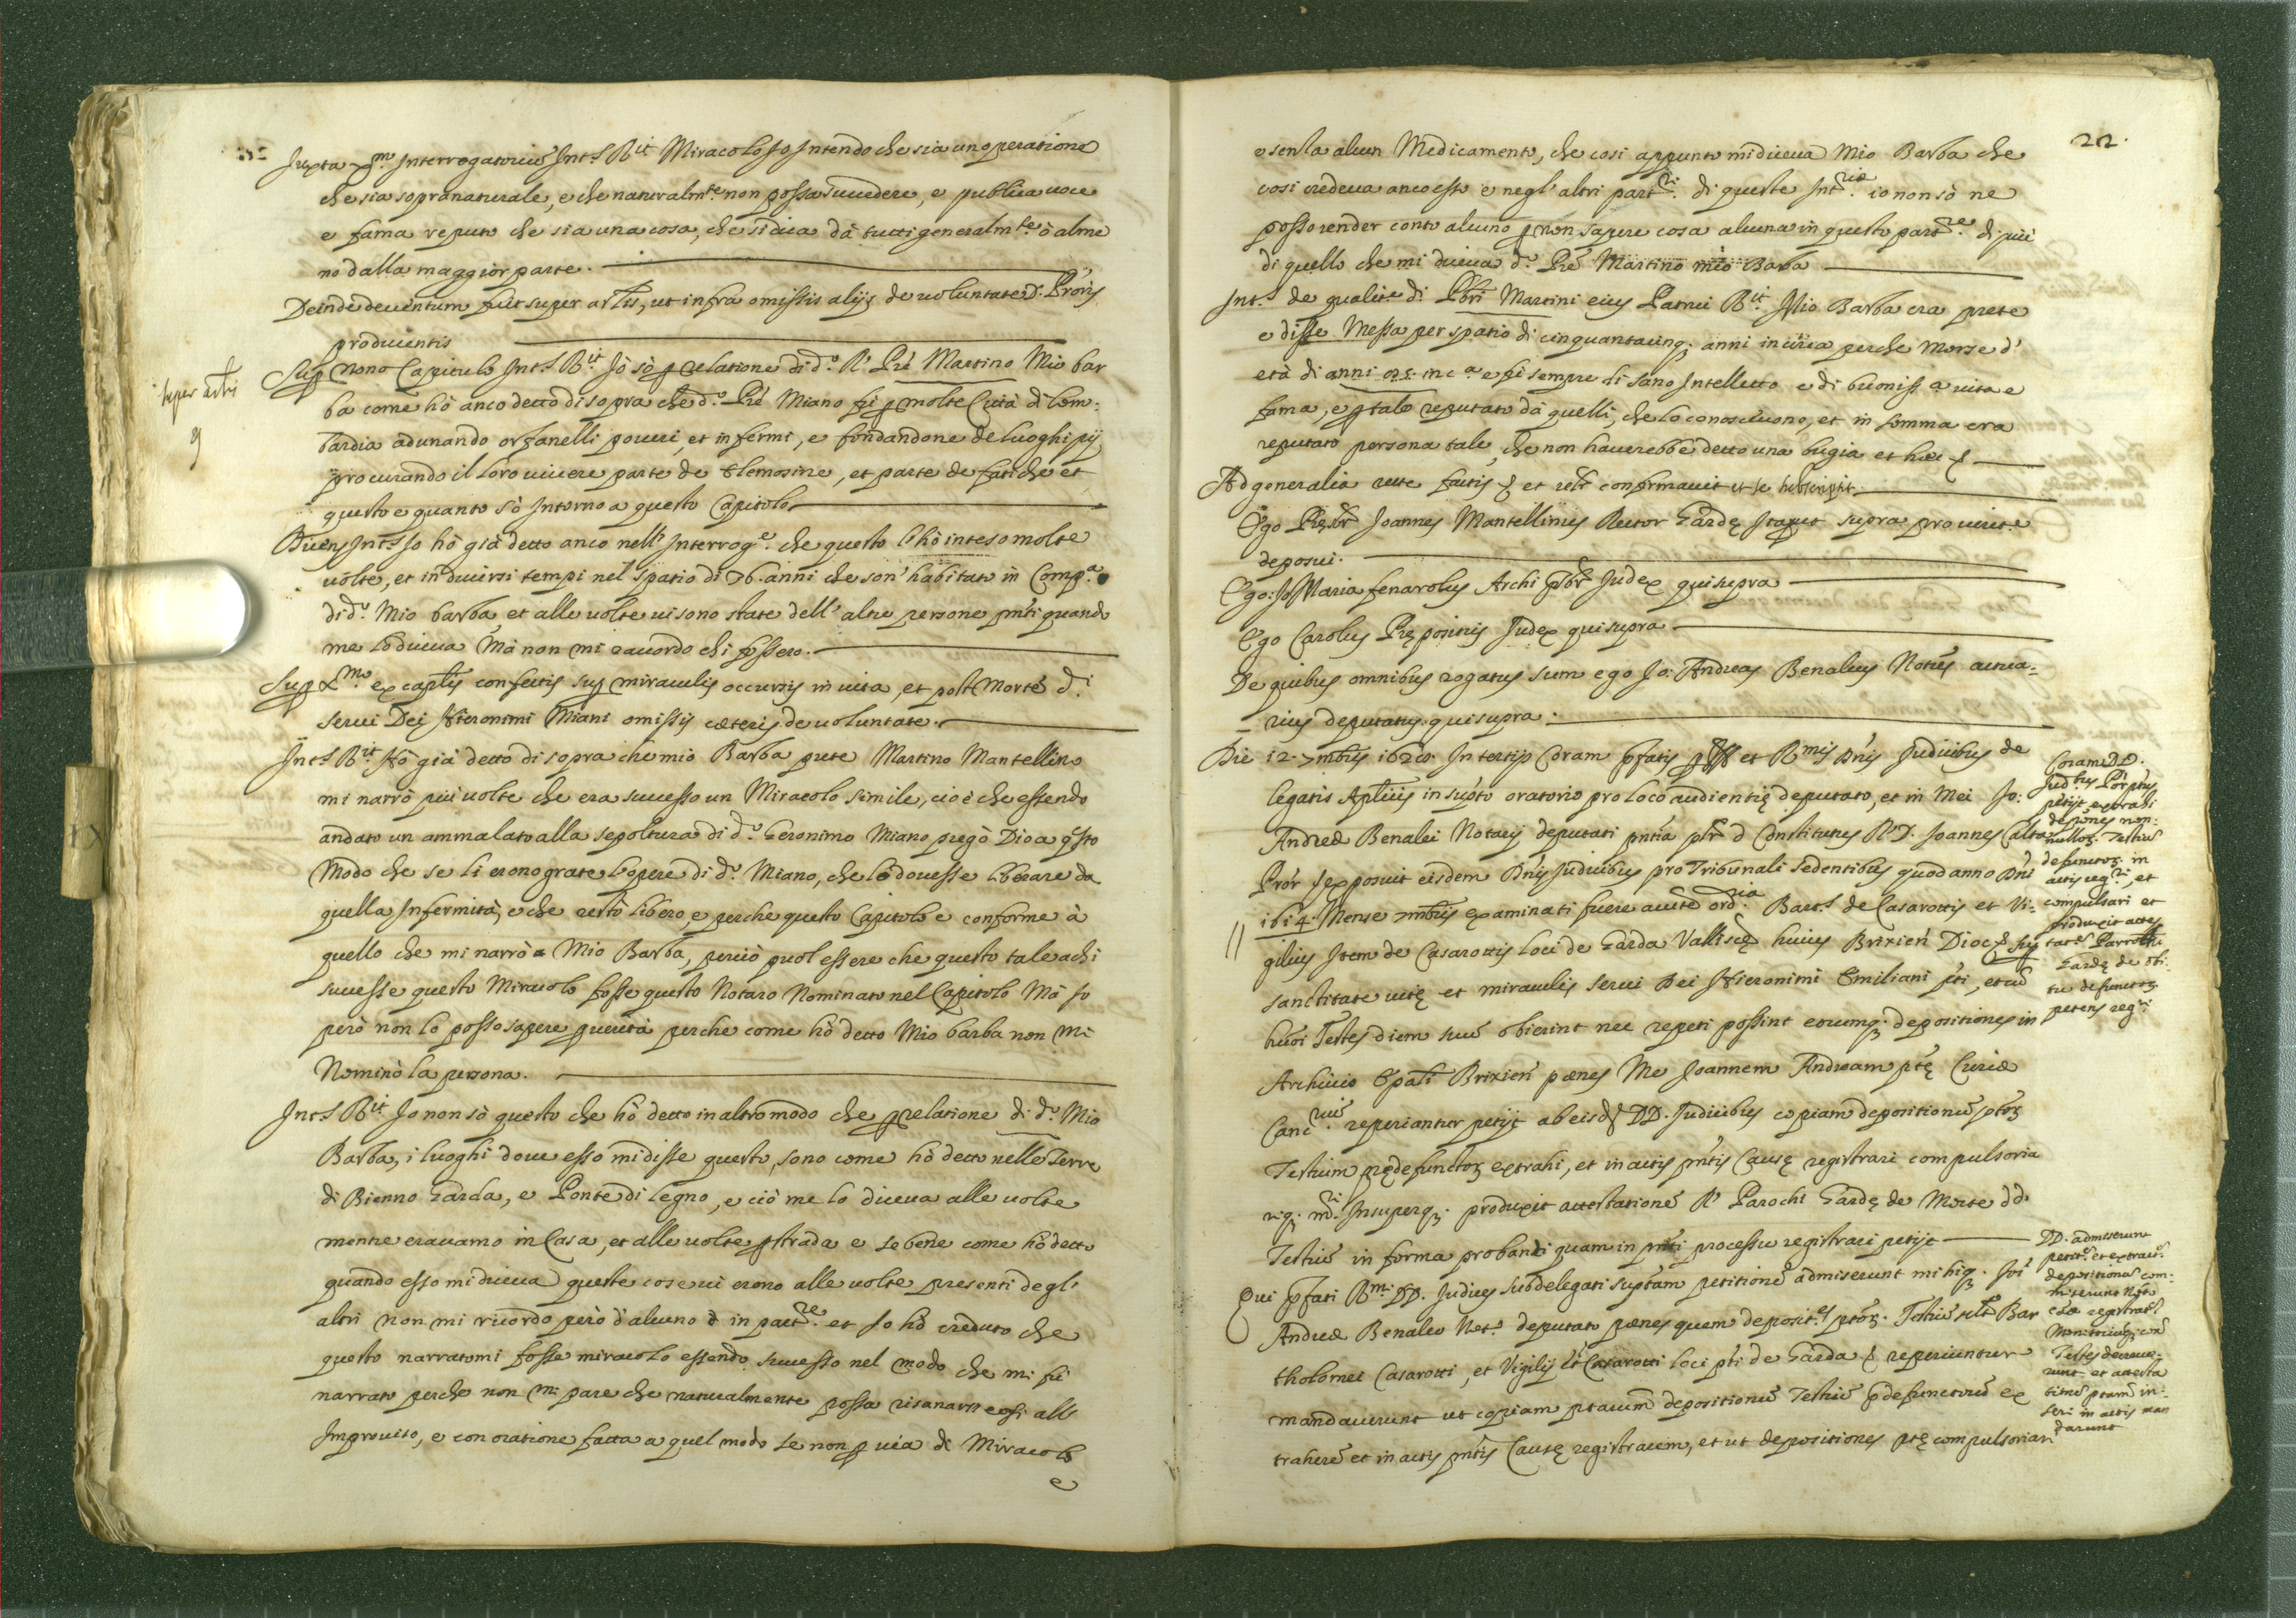 Juxta xm. Interrogatoriũ Int.s Rit Miracolo Jo Intendo che sia un operatione
che sia sopranaturale, e che naturalmte. non possa succedere, e publica uoce
e fama reputo che sia una cosa, che si dica dà tutti generalmte. ò alme
no dalla maggior parte.
Deinde deuentum fuit super artlis, ut infra omissis alijs de uoluntate D. Proris
producentis
super artli
9
Sup nono Capitulo Int.s Rit Jò sò p relatione di do. R. Pre Martino Mio bar
ba come hò anco detto di sopra che do. Pre Miano fù p molte Città di lom:
bardia adunando orfanelli poueri, et infermi, e fondandone de luoghi pij
procurando il loro uiuere parte de Elemosine, et parte de fatiche et
questo e quanto sò Intorno a questo Capitolo.
Diens Int.s Jo hò già detto anco nell' Interroge. che questo l'hò inteso molte
uolte, et in diuersi tempi nel spatio di 76. anni che son' habitato in Compa.
di do. Mio barba, et alle uolte ui sono state dell' altre persone pnti quando
me lo diceua Mà non mi raccordo chi fossero.
Sup Xmo. ex captis confectis sup miraculis occursis in uita, et post Mortẽ di
serui Dei Hieronimi Miani omissis cæteris de uoluntate.
Int.s Rit. Hò già detto di sopra che mio Barba prete Martino Mantellino
mi narrò piu uolte che era successo un Miracolo simile, cio è che essendo
andato un ammalato alla sepoltura di do. Geronimo Miano pregò Dio a qsto
Modo che se li erono grate l'opere di do. Miano, che lo douesse liberare da
quella Infermità, e che restò libero, e perche questo Capitolo e conforme à
quello che mi narrò Mio Barba, perciò puol essere che questo tale a chi
successe questo Miracolo fosse questo Notaro Nominato nel Capitolo Mà Jo
però non lo posso sapere p uerità perche come hò detto Mio barba non mi
Nominò la persona.
Int.s Rit Jo non sò questo che hò detto in altro modo che p relatione di do. Mio
Barba, i luoghi doue esso mi disse questo, sono come hò detto nelle Terre
di Bienno Garda, e Ponte di legno, e ciò me lo diceua alle uolte
mentre erauamo in Casa, et alle uolte p strada e se bene come hò detto
quando esso mi diceua queste cose ui erono alle uolte presenti degl'
altri non mi ricordo però d'alcuno in partre. et Jo hò creduto che
questo narratomi fosse miracolo essendo successo nel modo che mi fù
narrato perche non mi pare che naturalmente possa risanarsi cosi all'
Improuiso, e con oratione fatta a quel modo se non p uia di Miracolo
e
22.
e senza alcun Medicamento, che cosi appunto mi diceua Mio Barba che
cosi credeua anco esso e negl' altri partri. di queste Intrie. io non sò ne
posso render conto alcuno p non sapere cosa alcuna in questo partre. di più
di quello che mi diceua do. Pre Martino mio Barba
Int.s de qualite. di Pbri Martini eius Patrui Rit. Mio Barba era prete
e disse Messa per spatio di cinquantacinq; anni in circa perche Morse d'
età di anni 95. in ca. e fù sempre di sano Intelletto e di buonissa. uita e
fama, e p tale reputato dà quelli, che lo conosceuono, et in somma era
reputato persona tale, che non hauerebbe detto una bugia et hæc &
Ad generalia recte factis & et relr confirmauit et se subscripsit.
Ego Prsbr Joannes Mantellinus Rector Gardę Ita ut supra pro ueritte.
deposui.
Ego: Jo Maria fenarolus Archi pbr Judex qui supra
Ego Carolus Prępositus Judex qui supra
De quibus omnibus rogatus sum ego Jo: Andreas Benaleus Notus actua=
rius deputatus. qui supra.
Die 12. 7mbris 1628. In tertijs Coram pfatis et Rmis Dnis Judicibus de
legatis Aplicis in supto oratorio pro loco audientię deputato, et in Mei Jo:
Andreæ Benalei Notarij deputati pntia Constitutus R. D. Joannes Calta
Pror Jexposuit eisdem Dnis Judicibus pro Tribunali sedentibus quod anno Dni
1614. Mense 7mbris examinati fuere aucte ordria. Bart.s de Casarottis et Vi:
gilius Item de Casarottis loci de Garda Valliscę huius Brixien Dioc& sup
sanctitate uitę et miraculis serui Dei Hieronimi Emiliani pti, et cũ
huõi Testes diem suũ obierint nec repeti possint eorumq; depositiones in
Archiuio Epali Brixien pænes Me Joannem Andream ptę Curiæ
Cancrius. reperiantur petijt ab eisd DD. Judicibus copiam depositionũ ptor
Testium prędefunctor extrahi, et in actis pntis Causę registrari compulsoria
Insuperq; produxit attestationẽ R. Parochi Gardę de Morte dd.
Testiũ in forma probanti quam in pnti processu registrari petijt
Qui pfati Rmi. DD. Judices subdelegati suptam petitionẽ admiserunt mihiq; Joi
Andreæ Benaleo Noto. deputato pænes quem deposites ptor. Testiũ Bar
tholomei Casarotti, et Vigilij Casarotti loci pti de Garda & reperiuntur
mandauerunt ut copiam ptarum depositionũ Testiũ pdefunctorũ ex
traherẽ et in actis pntis Causę registrarem, et ut depositiones ptę compulsoriam
Coram DD.
Judbus Pror ptus
petijt extrahi
depnes non:
nullor. Testiũ
defunctor in
actis regri, et
compulsari et
produxit attes
tatẽ Parrochi
Gardę de obi:
tu defunctor
petens regri
DD. admiserunt
petitẽ et extraiẽ
depositionũ com:
miserunt Noto
Testes decreue:
runt, et attesta
tionẽ ptam in:
seri in actis man
darunt